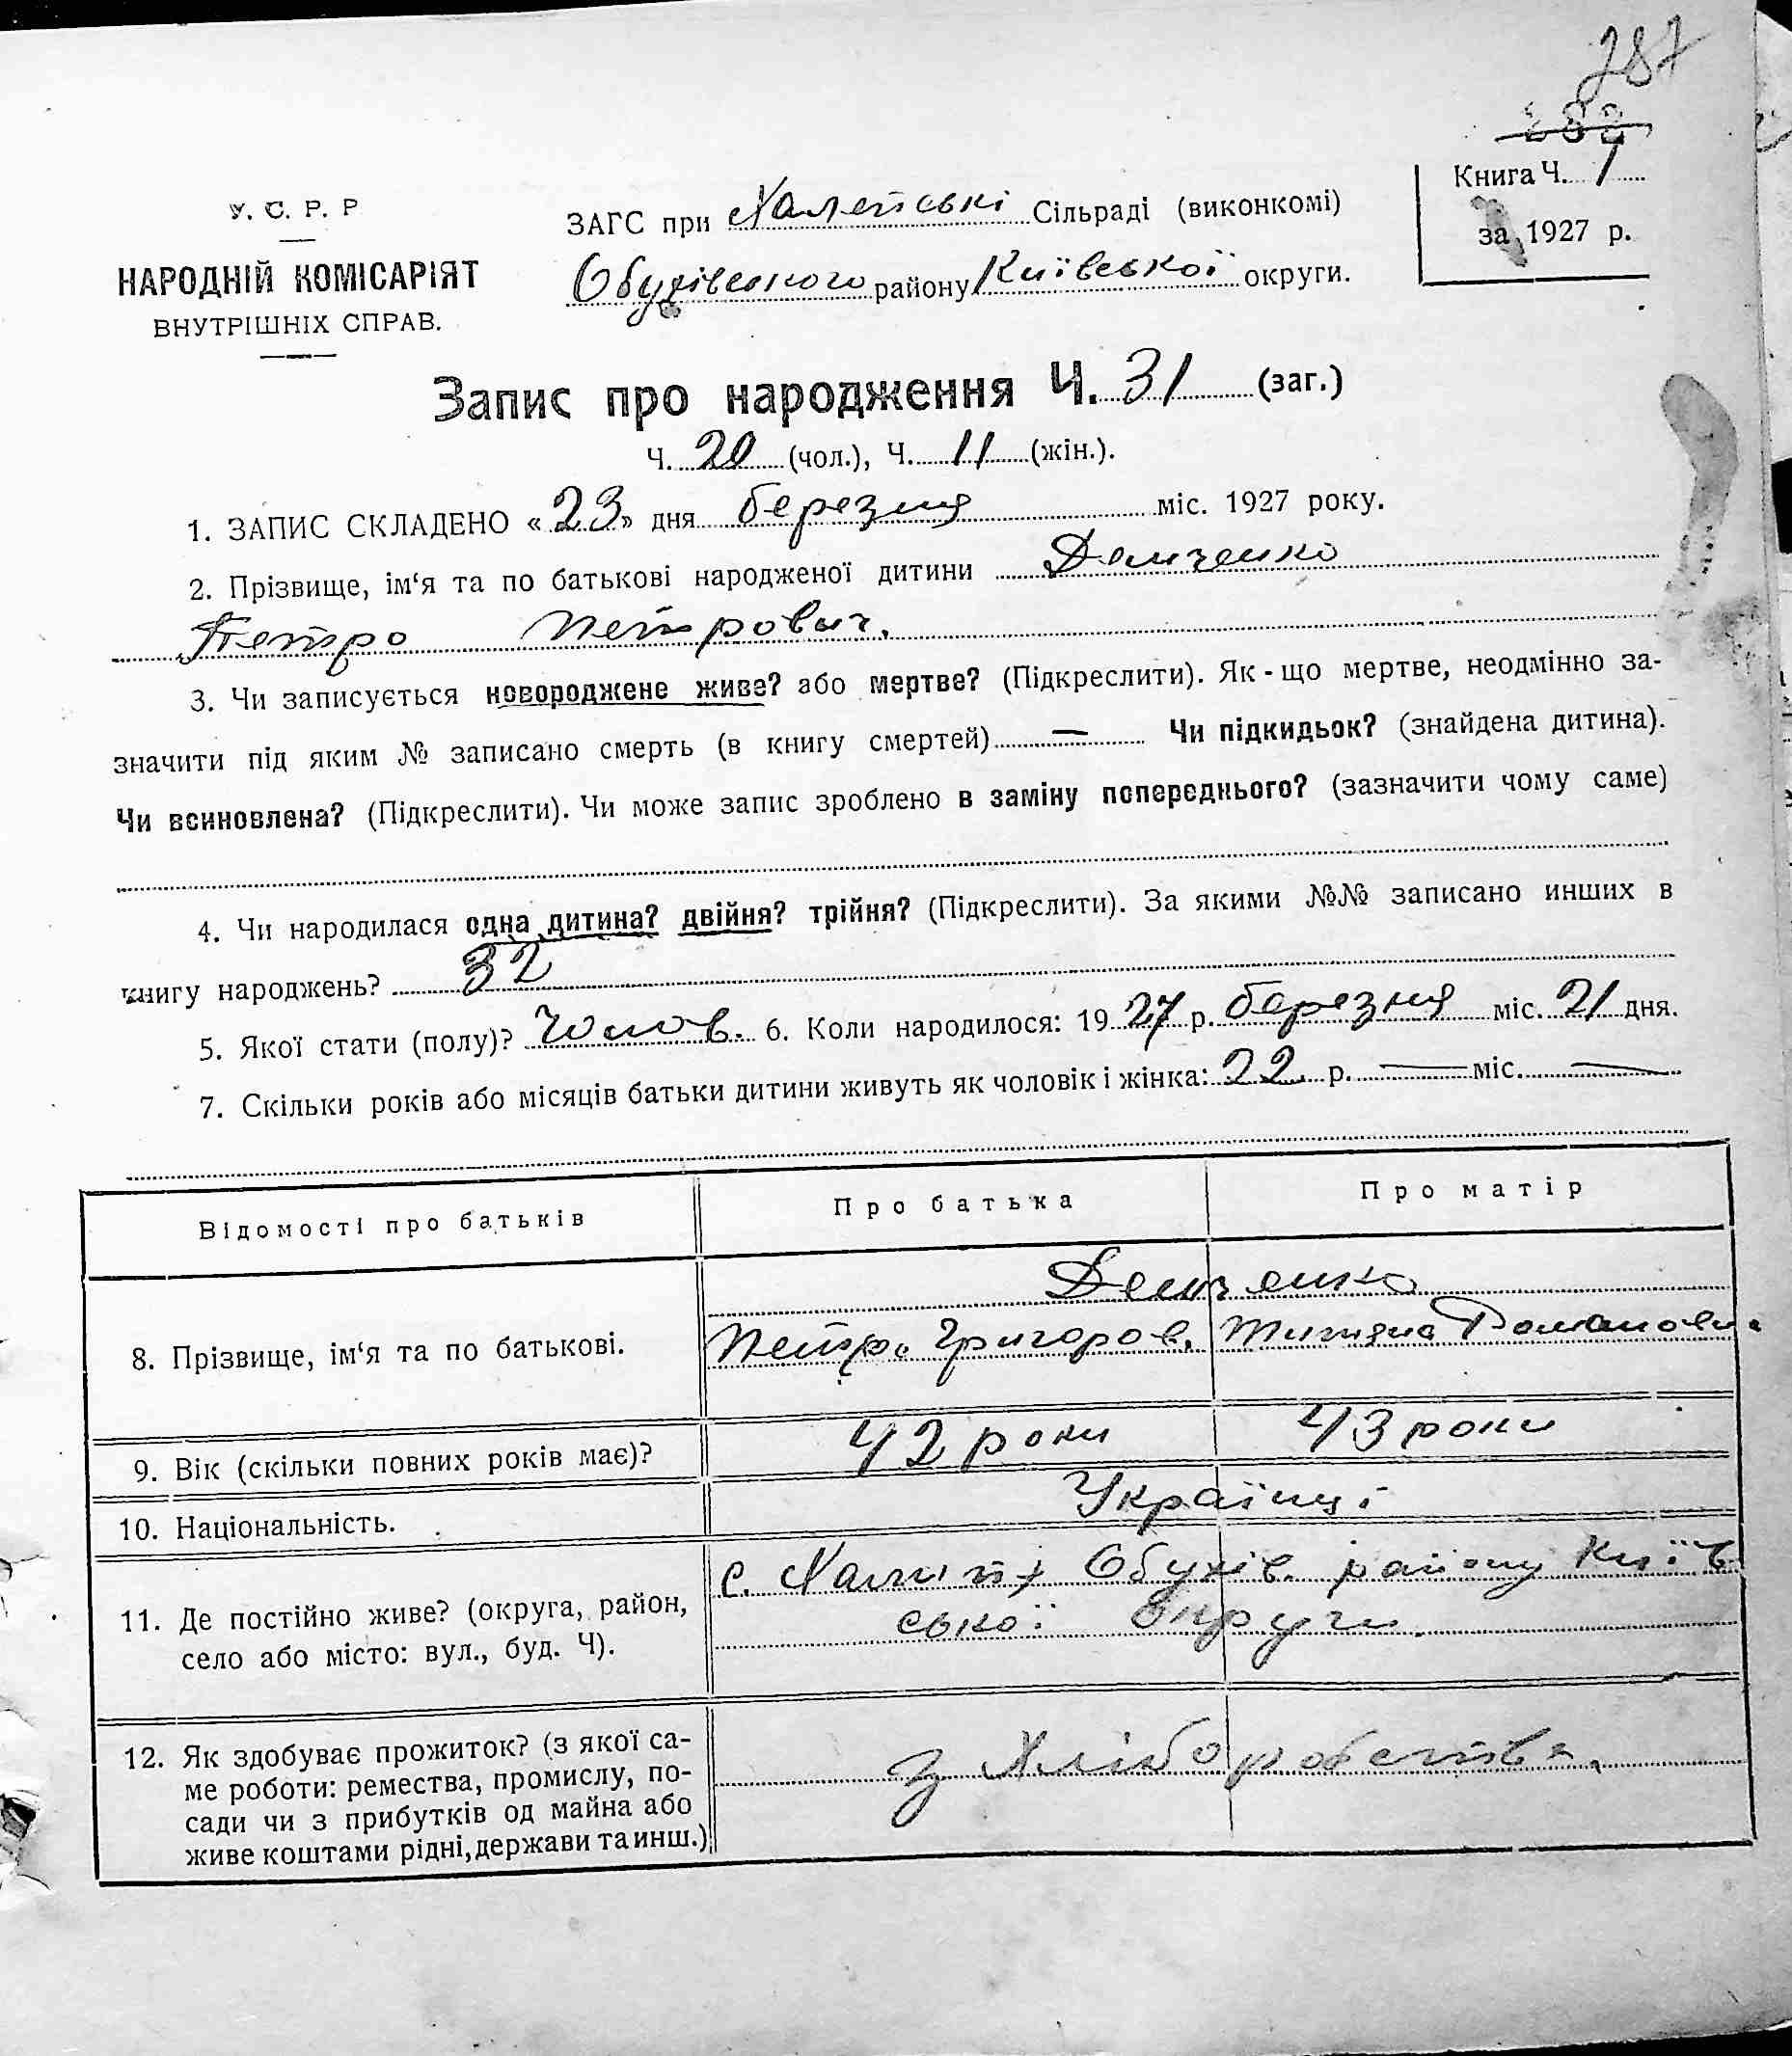 287
288
Книга Ч. 1
за 1927 р.
У. С. Р. Р
НАРОДНІЙ КОМІСАРІЯТ
ВНУТРІШНІХ СПРАВ.
ЗАГС при Халепські Сільраді (виконкомі)
Обухівського району Київської округи.
Запис про народження Ч. 31 (заг.)
Ч. 20 (чол.), Ч. 11 (жін.).
1. ЗАПИС СКЛАДЕНО «23» дня березня міс. 1927 року.
2. Прізвище, ім‘я та по батькові народженої дитини Демченко
Петро Петрович.
3. Чи записується новороджене живе? або мертве? (Підкреслити). Як-що мертве, неодмінно за-
значити під яким № записано смерть (в книгу смертей) — Чи підкидьок? (знайдена дитина).
Чи всиновлена? (Підкреслити). Чи може запис зроблено в заміну попереднього? (зазначити чому саме)
4. Чи народилася одна дитина? двійня? трійня? (Підкреслити). За якими №№ записано инших в
книгу народжень? 32
5. Якої стати (полу)? Чолов. 6. Коли народилося: 1927 р. березня міс. 21 дня.
7. Скільки років або місяців батьки дитини живуть як чоловік і жінка: 22 р. — міс. —
Відомості про батьків Про батька Про матір
Демченко
8. Прізвище, ім‘я та по батькові. Петро Григоров. Романовн.
9. Вік (скільки повних років має)? 42 роки 43 роки
10. Національність. Українці
11. Де постійно живе? (округа, район,
село або місто: вул., буд. Ч).
с. Обухів. району Київ
ської округи.
12. Як здобуває прожиток? (з якої са-
ме роботи: ремества, промислу, по-
сади чи з прибутків од майна або
живе коштами рідні, держави та инш.)
з Хліборобства.